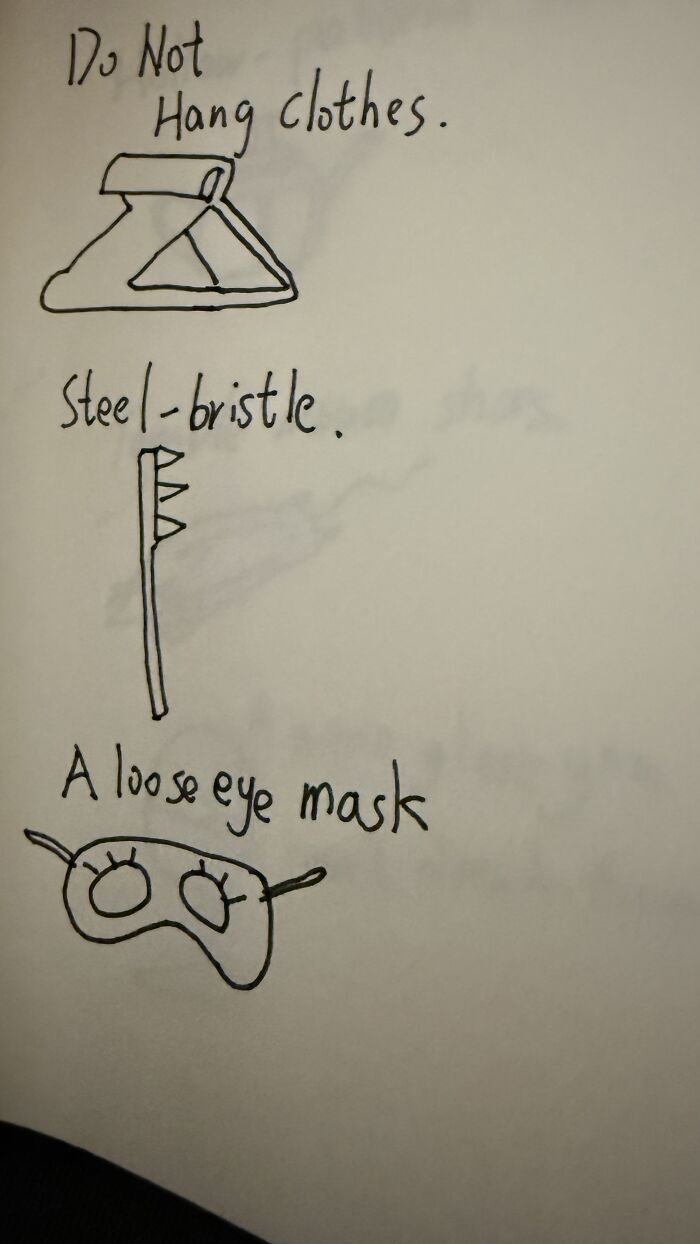 Do Not
Hang clothes.
Steel-bristle.
A loose eye mask